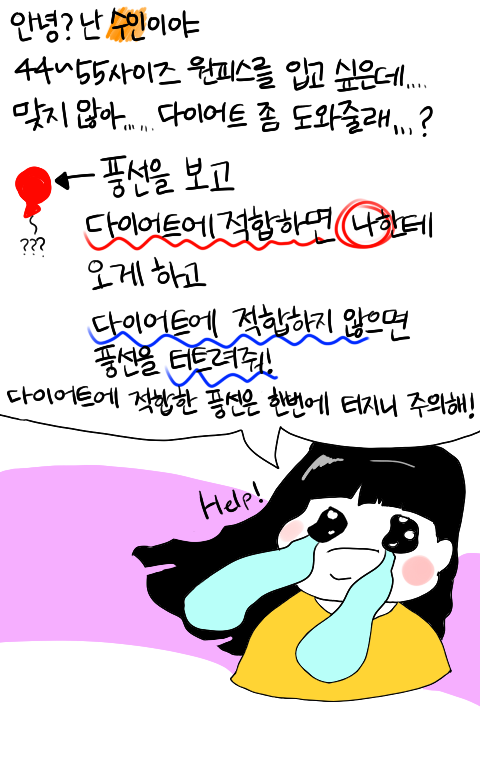 안녕? 난 수인이야
44~55사이즈 원피스를 입고 싶은데....
맞지 않아...... 다이어트 좀 도와줄래...?
풍선을 보고
???
다이어트에 적합하면 나한테
오게 하고
다이어트에 적합하지 않으면
풍선을 터트려줘!
다이어트에 적합한 풍선은 한번에 터지니 주의해!
Help!